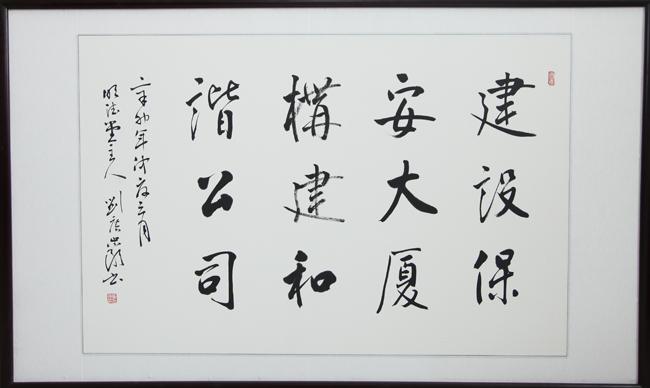 建設保
安大厦
構建和
諧公司
辛卯年 三月
明德堂主人 劉